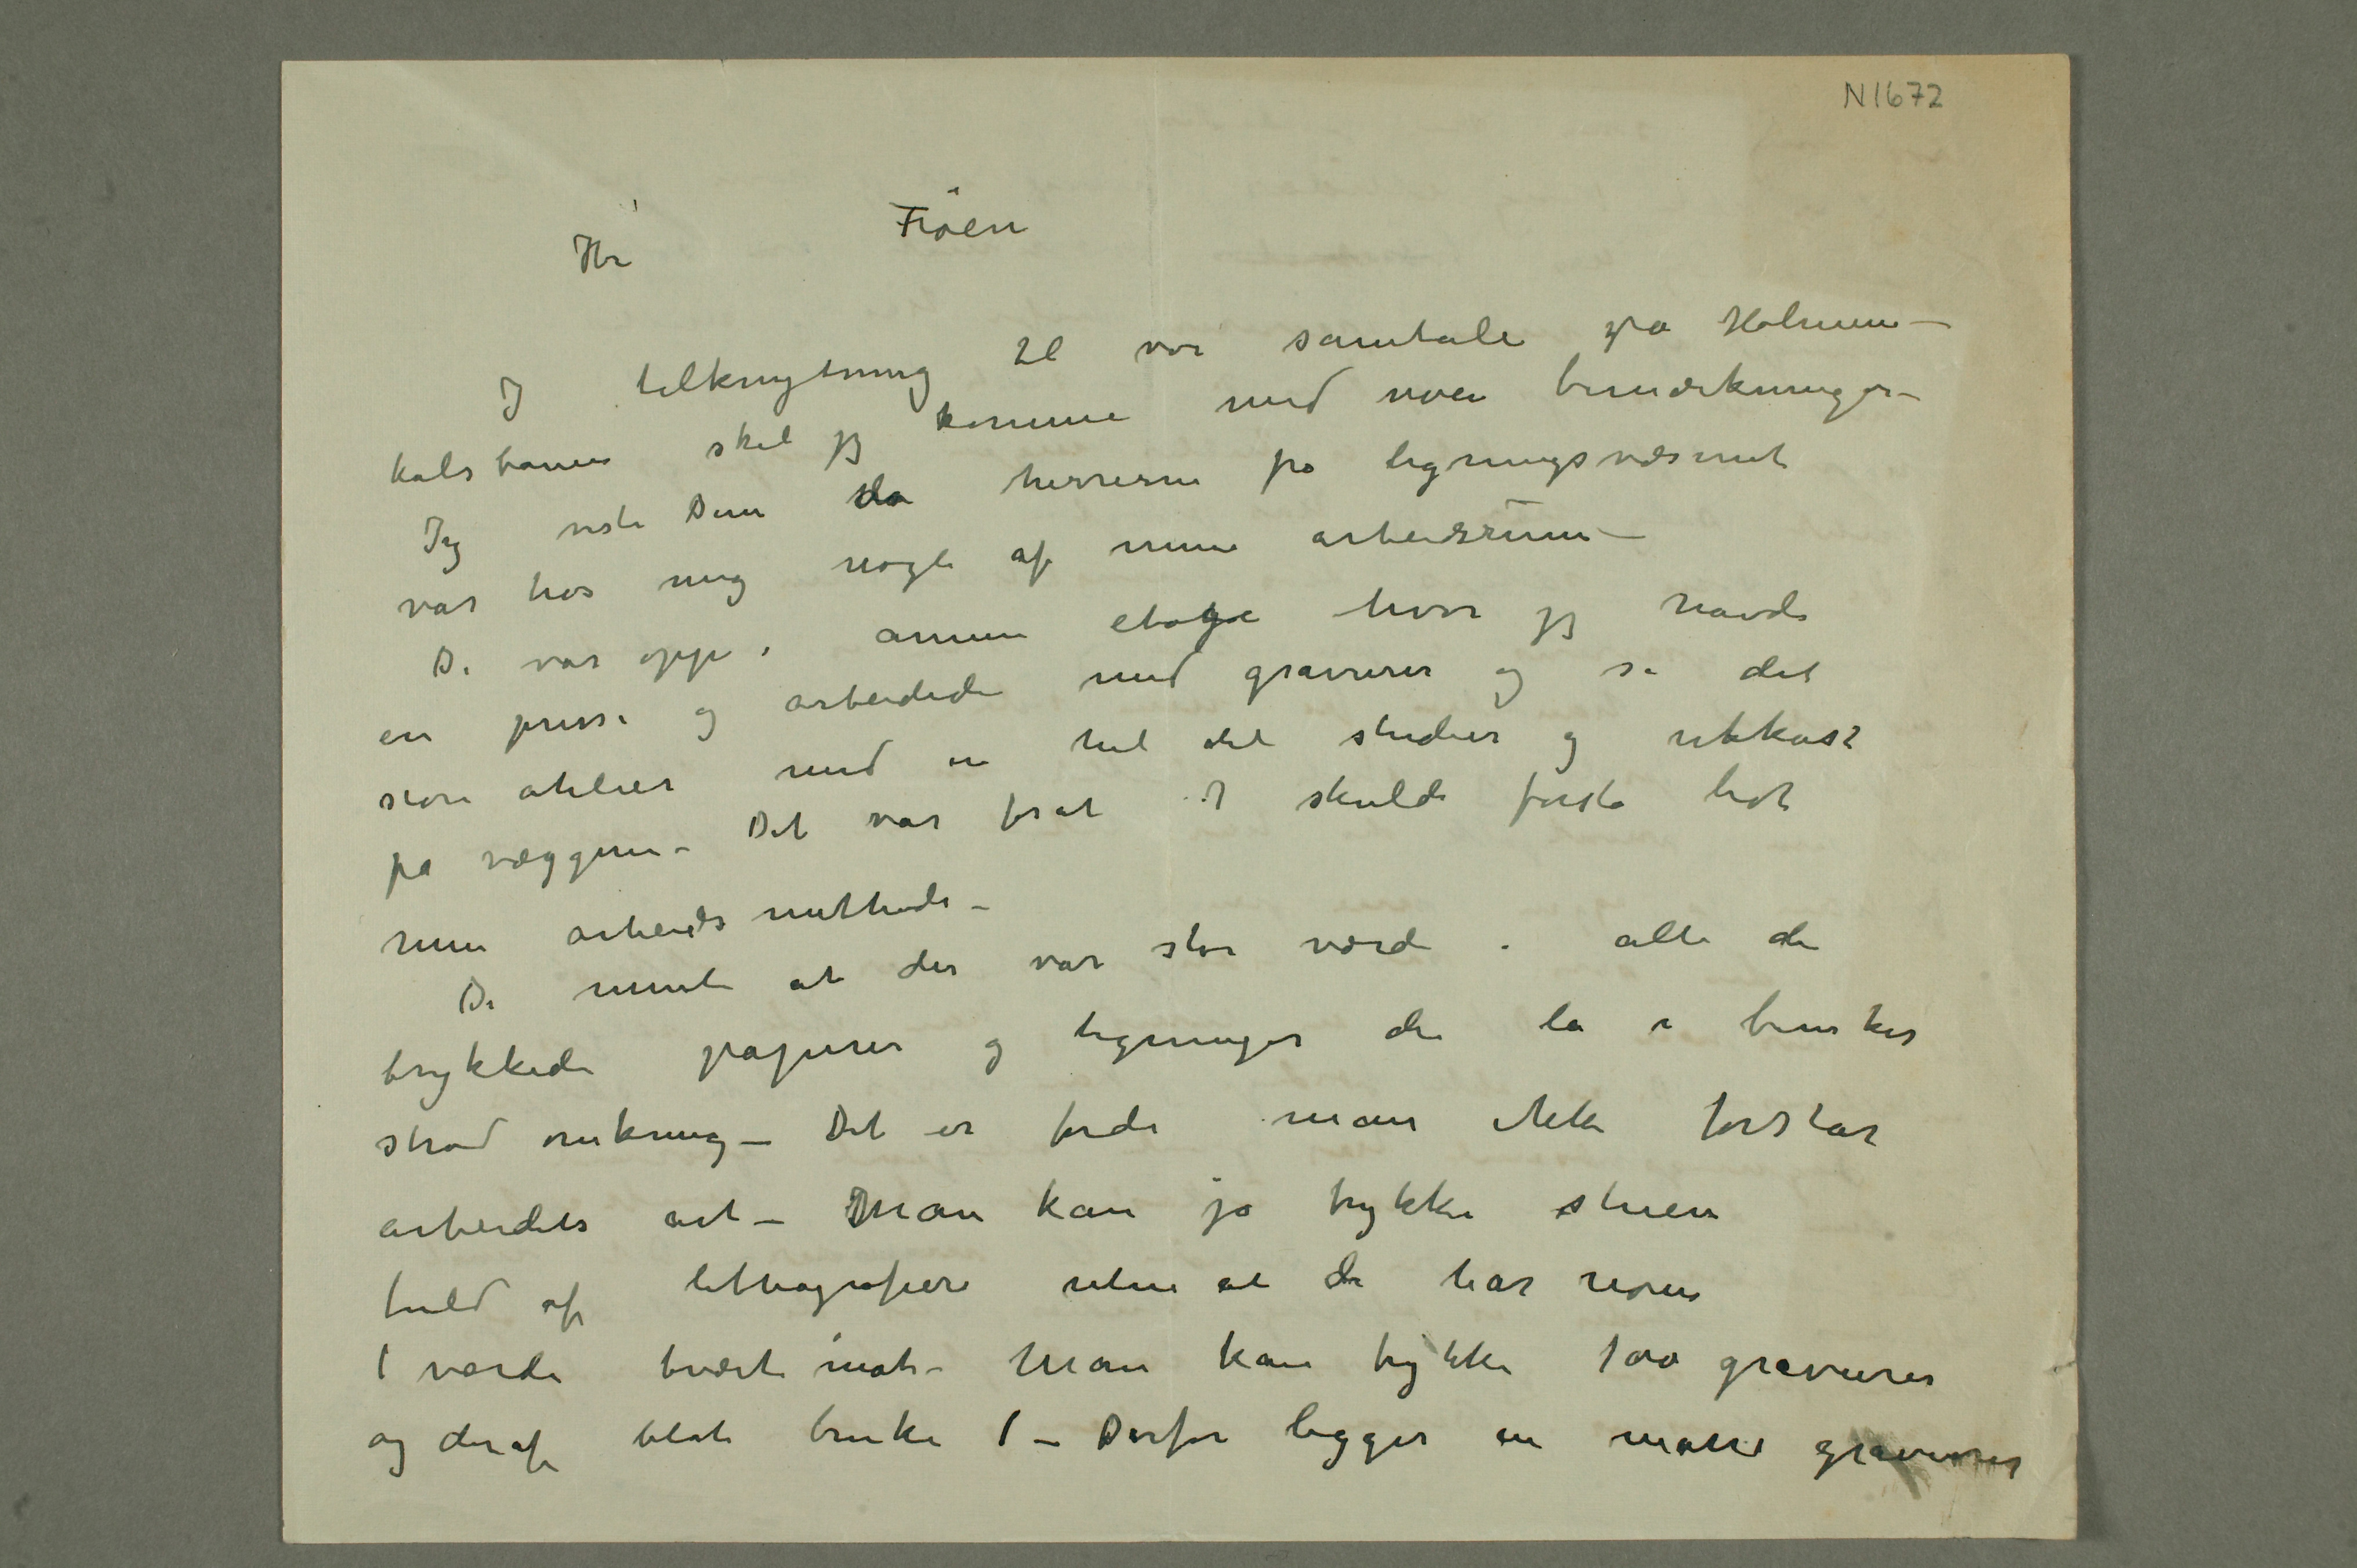 N1672
Hr Frøen
I tilknytning til vor samtale på Holmen–
kolsbanen skal jeg komme med noen bemærkninger –
Jeg viste Dem da herrerne fra ligningsvæsenet
var hos mig nogle af mine arbeidsrum –
De var oppe i annen etage hvor jeg havde
en presse og arbeidede med gravurer og så det
store atelier med en hel del studier og utkast
på væggene – Det var forat I skulde forstå lidt
min arbeids methode –
De mente at der var stor værdi i alle de
trykkede papirer og tegninger der lå i bunker
strød omkring – Det er fordi man ikke forstår
arbeidets art – Man kan jo trykke stuen
fuld af lithografier uten at de har noen
værdi tvært imot – Man kan trykke 100 gravurer
og deraf blot bruke 1 – Derfor ligger en masse gravurer